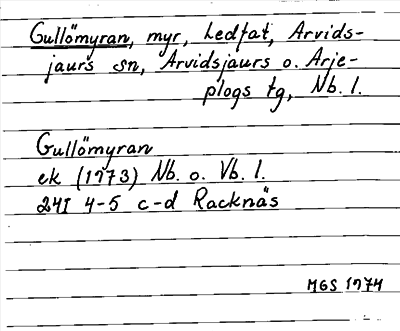 Gullömyran, myr, Ledfat, Arvids-
jaurs sn, Arvidsjaurs o. Arje-
plogs tg, Nb. l.
Gullömyran
ek (1973) Nb. o. Vb. l.
24I 4-5 c-d Racknäs
MGS 1974